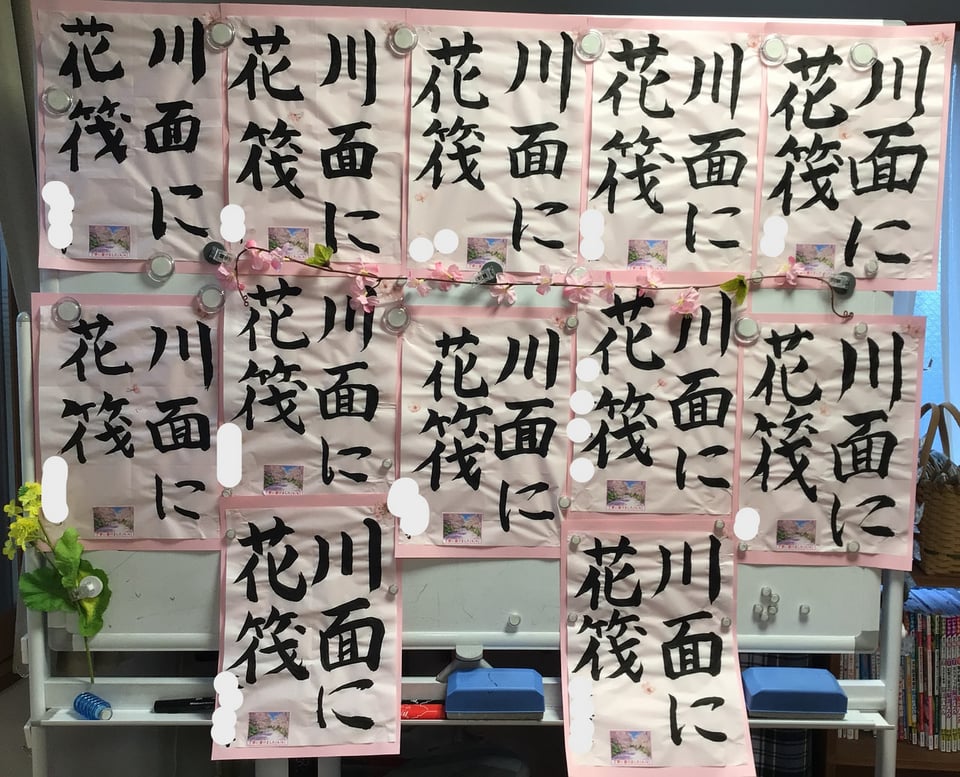 川面に
花筏
川面に
花筏
川面に
花筏
川面に
花筏
川面に
花筏
川面に
花筏
川面に
花筏
川面に
花筏
川面に
花筏
川面に
花筏
川面に
花筏
川面に
花筏